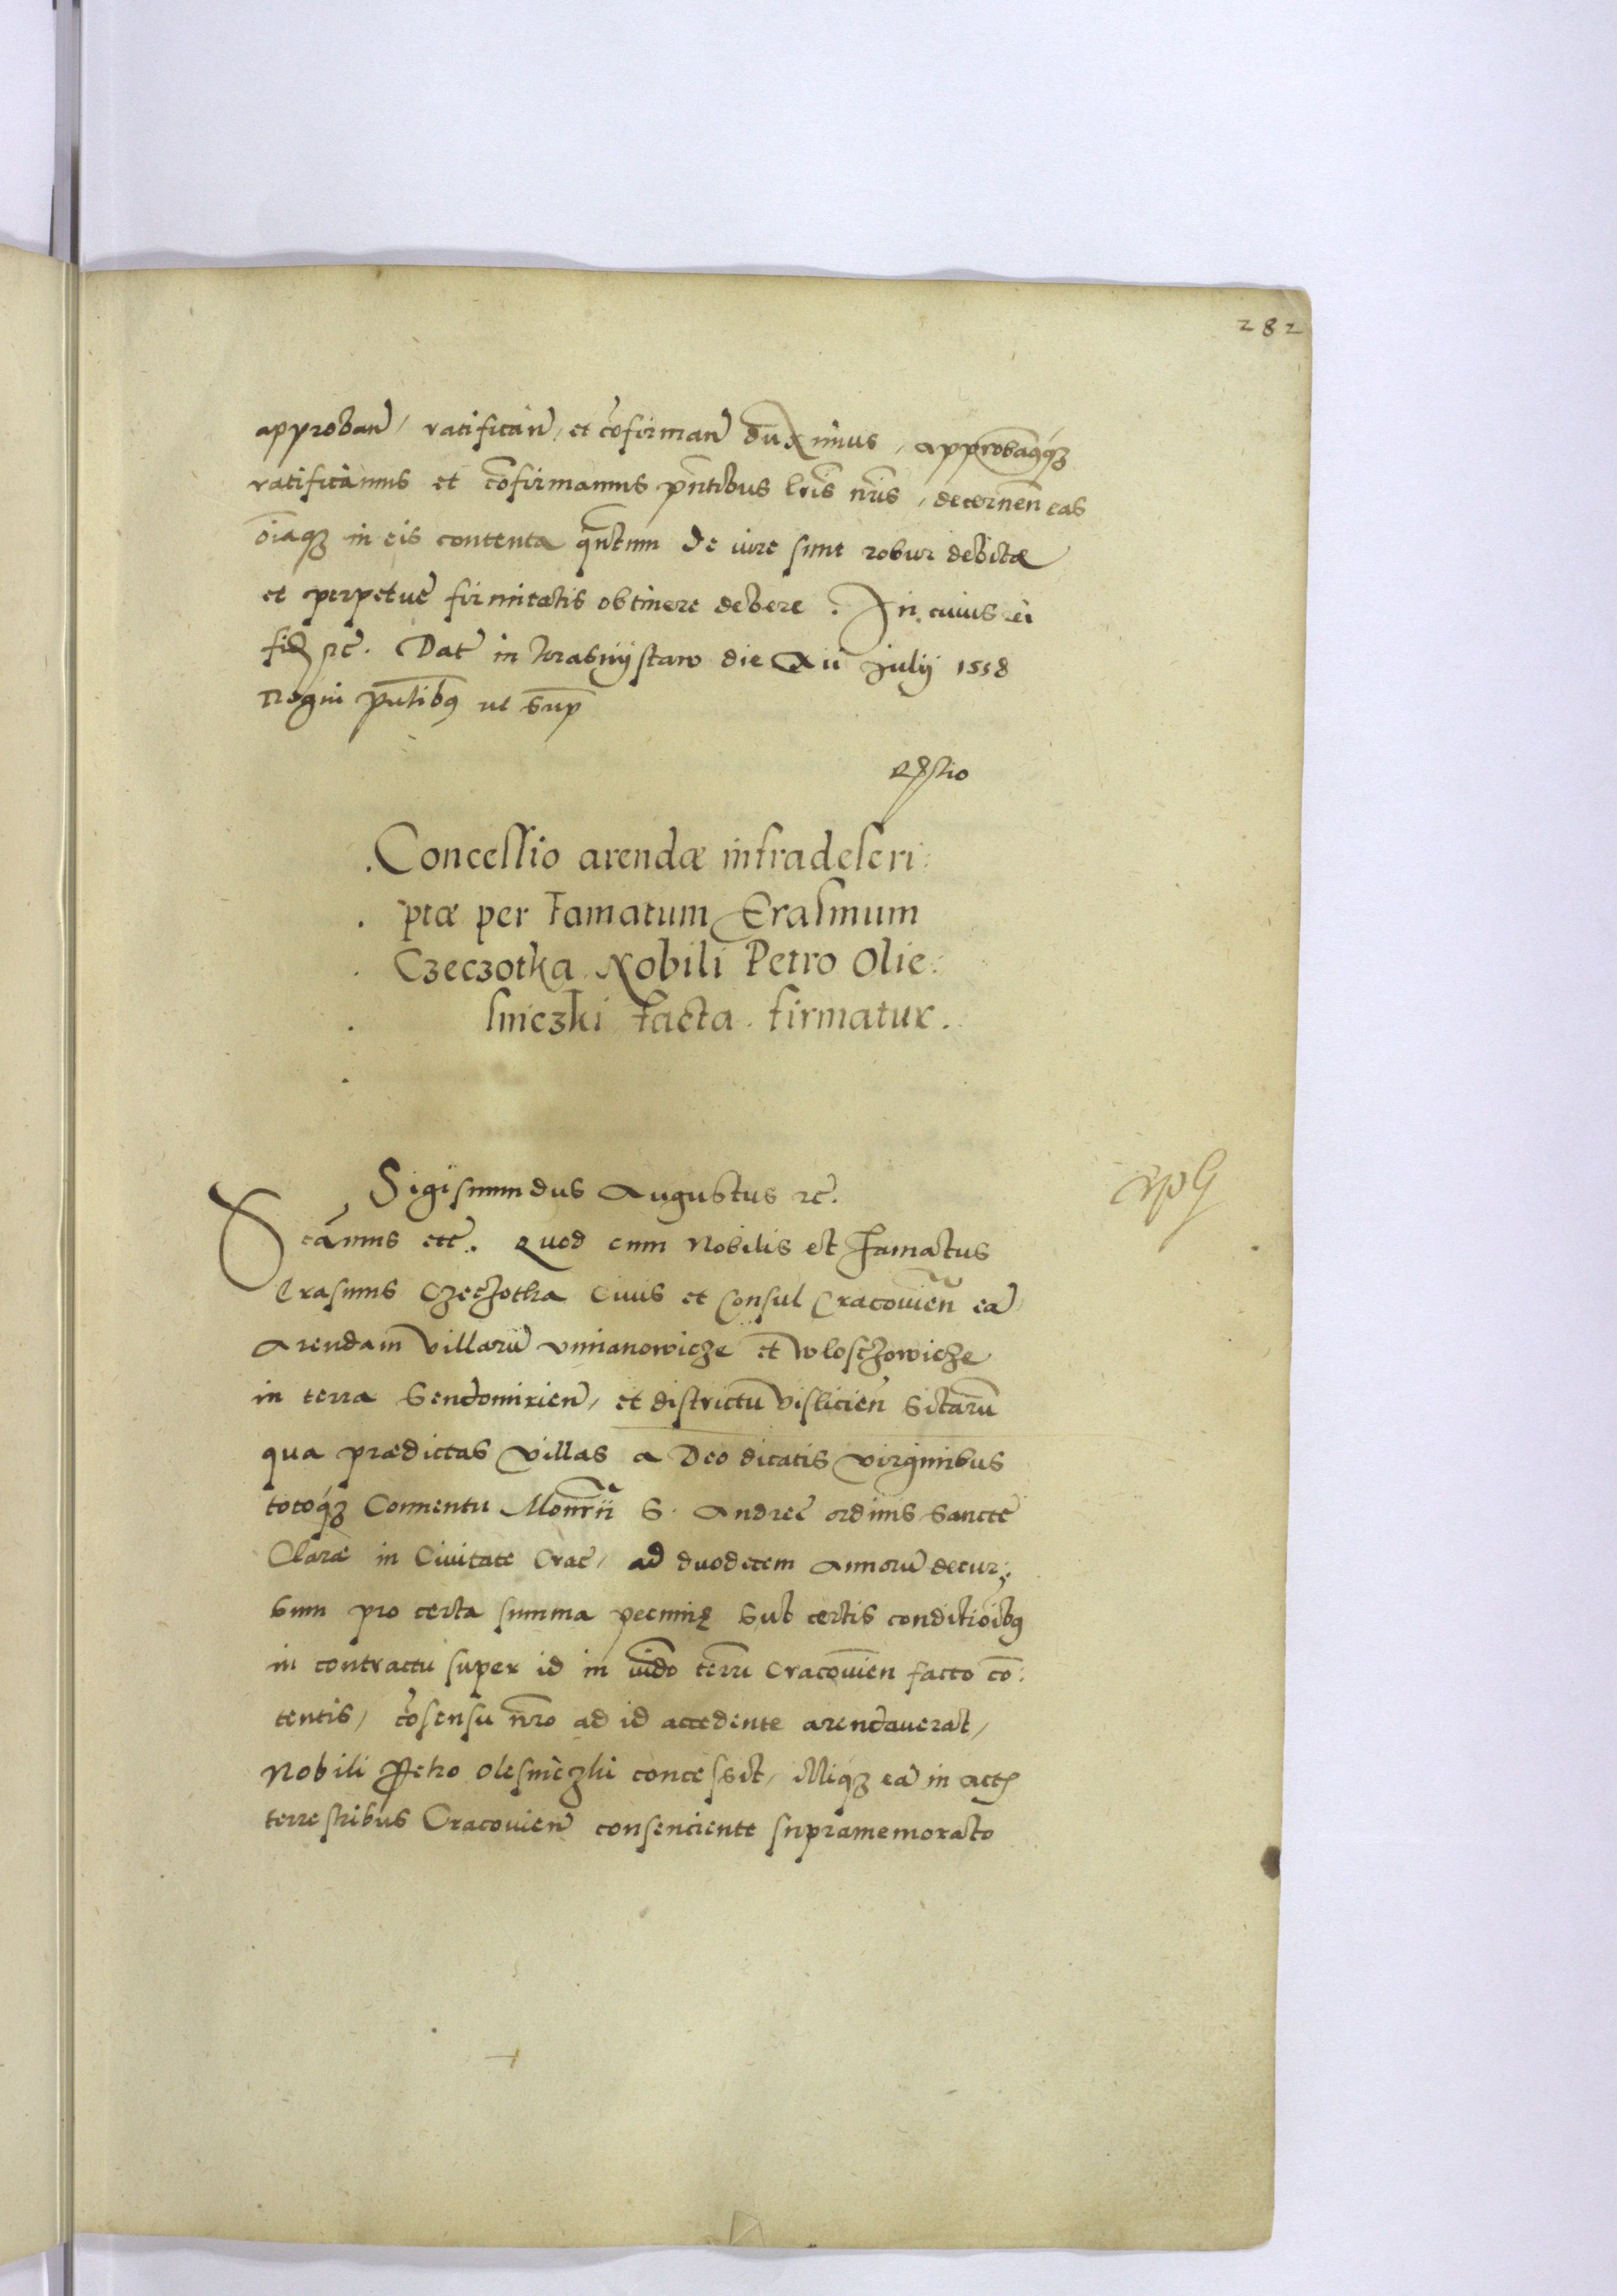 282
approban̄, ratificān̄, et cōfirman̄ duximus, approbam̄qꝫ
ratificamus et cōfirmamus pn̄tibus lr̄is nr̄is, decernen̄ eas
oīaqꝫ in eis contenta qn̄tum de iure sunt robur debitæ
et perpetuę firmitatis obtinere debere. In cuius rei
fid ꝛc̄. Dat̄ in krasnijstaw die Xii Julij 1558
Regni
ut sup̄
Concessio arendæ infradescri:
ptæ per famatum Erasmum
Czeczotka Nobili Petro Olie:
sniczki facta firmatur.
Sigismundus Augustus ꝛc̄.
cāmus etc̄. Quod cum Nobilis et famatus
Erasmus Czeczotka Ciuis et Consul Cracouien̄ eā
Arendam villarū vnianowicze et wloszowicze
in terra Sendomirien̄, et districtū vislicien̄ sitarū
qua prædictas villas a Deo dicatis virginibus
totoqꝫ Conuentu Monr̄ii S. Andreę ordinis sanctę
Claræ in Ciuitate Crac̄, ad duodecem annorū decur:
sum pro certa summa pecunię sub certis conditioībꝯ
in contractu super id in iud̄o terr̄ri Cracouien̄ facto cō:
tentis, cōsensu nr̄o ad id accedente arendauerat,
Nobili Petro Olesniczki concessit, illiqꝫ eā in actis
terrestribus Cracouien̄ consenciente supramemorato